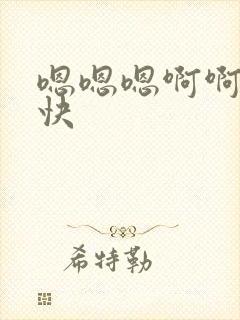 嗯嗯嗯啊啊
快
希特勒